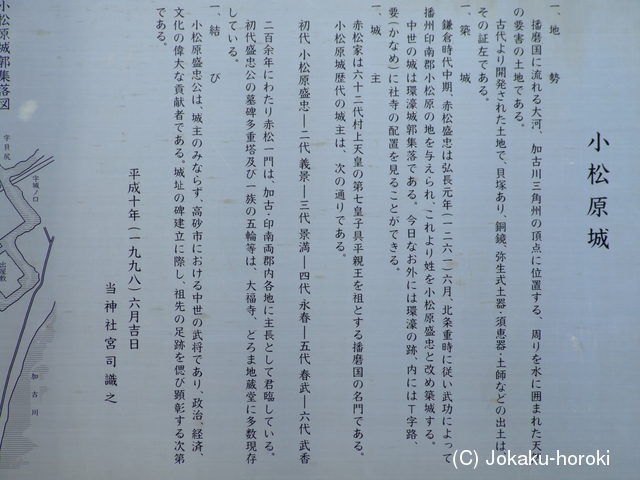 小松原城
一、地勢
播磨国に流れる大河、加古川三角州の頂点に位置する、周りを水に囲まれた天然
の要害の土地である。
古代より開発された土地で、貝塚あり、銅鏡、弥生式土器・須恵器・土師などの出土は
その証左である。
一、築城
鎌倉時代中期、赤松盛忠は弘長元年(一二六一)六月、北条重時に従い武功によって
播州印南郡小松原の地を与えられ、これより姓を小松原盛忠と改め築城する。
中世の城は環濠城郭集落である。今日なお外には環濠の跡、内にはT字路、
要(かなめ)に社寺の配置を見ることができる。
一、城主
赤松家は六十二代村上天皇の第七皇子具平親王を祖とする播磨国の名門である。
小松原城歴代の城主は、次の通りである。
初代 小松原盛忠―二代 義景―三代 景満―四代 永春―五代 春武―六代 武香
二百余年にわたり赤松一門は、加古・印南両郡内各地に主長として君臨している。
初代盛忠公の墓碑多重塔及び一族の五輪等は、大福寺、どろま地蔵堂に多数現存
している。
一、結び
小松原盛忠公は、城主のみならず、高砂市における中世の武将であり、政治、経済、
文化の偉大な貢献者である。城址の碑建立に際し、祖先の足跡を偲び顕彰する次第
である。
平成十年(一九九八)六月吉日
当神社宮司識之
小松原城郭集落図
字貝尻
字城ノ口
加古川
(C) Jokaku-horoki